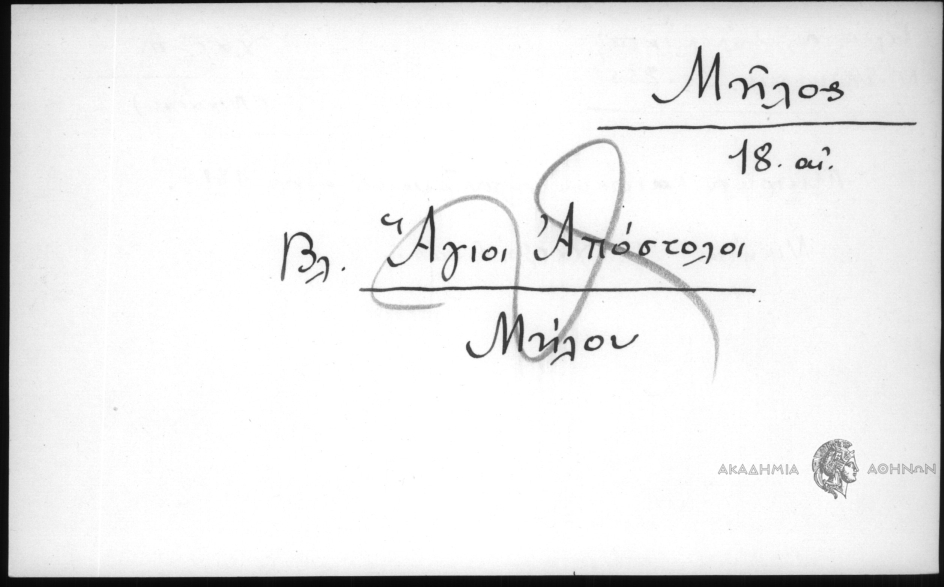 Μῆλος
18. αἰ.
Βλ. Ἅγιοι Ἀπόστολοι
Μήλου
ΑΚΑΔΗΜΙΑ ΑΘΗΝΩΝ